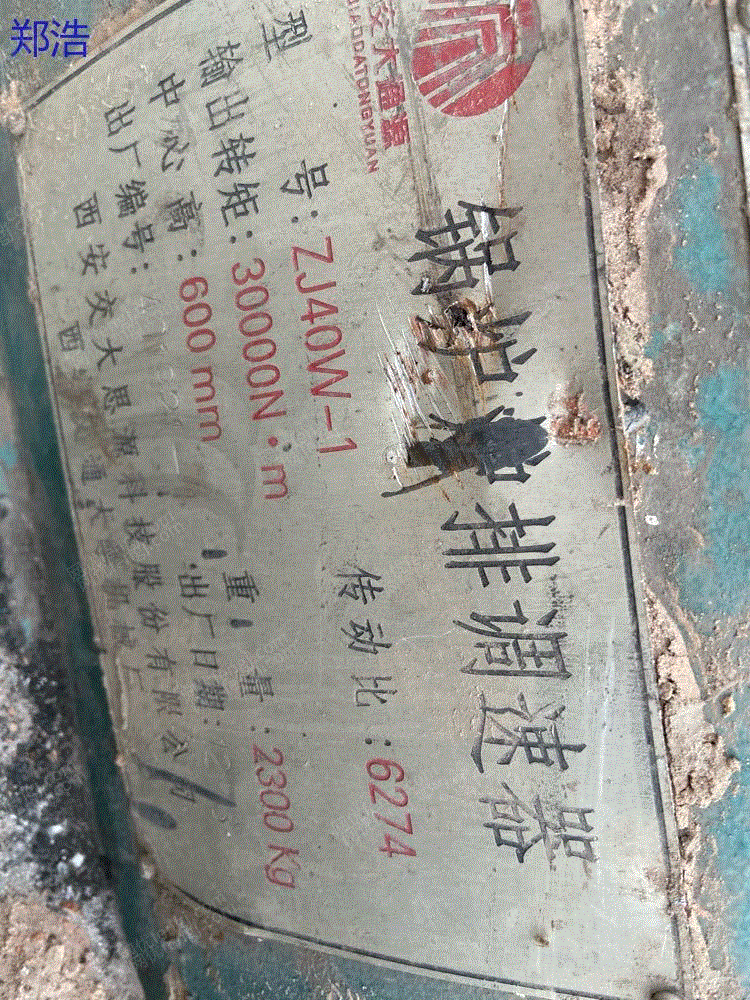 郑浩
交大通源
JIAODATONGYUAN
锅炉炉排调速器
型 号：ZJ40W-1 传动比：6274
输出转矩：30000N·m 重 量：2300kg
中心高：600mm 出厂日期：
出厂编号：
西安交大思源科技股份有限公司